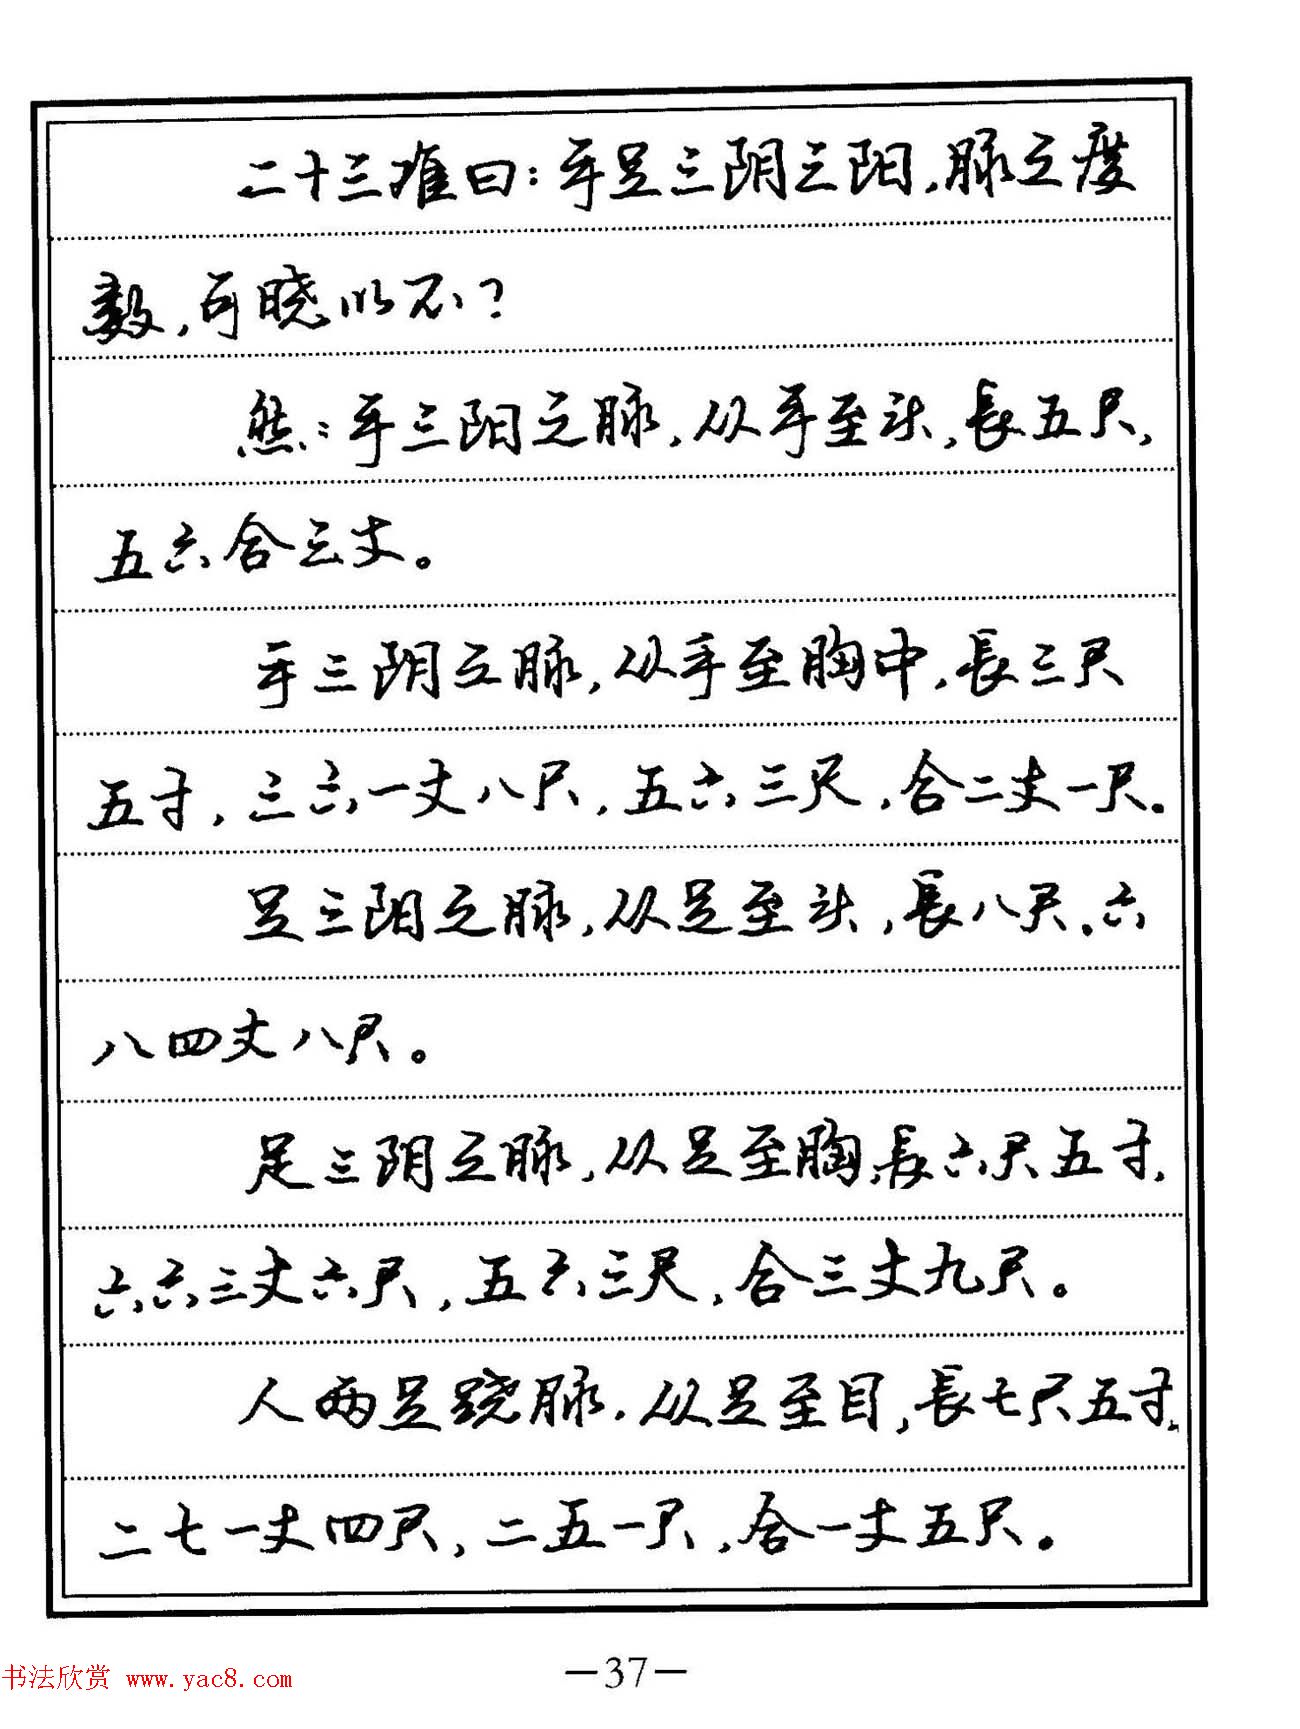 二十三难曰：手足三阴三阳，脉之度
数，可晓以不？
然：手三阳之脉，从手至头，長五尺，
五六合三丈。
手三阴之脉，从手至胸中，長三尺
五寸，三六一丈八尺，五六三尺，合二丈一尺。
足三阳之脉，从足至头，長八尺，六
八四丈八尺。
足三阴之脉，从足至胸，長六尺五寸，
六六三丈六尺，五六三尺，合三丈九尺。
人两足跷脉，从足至目，長七尺五寸，
二七一丈四尺，二五一尺，合一丈五尺。
书法欣赏 www.yac8.com
—37—